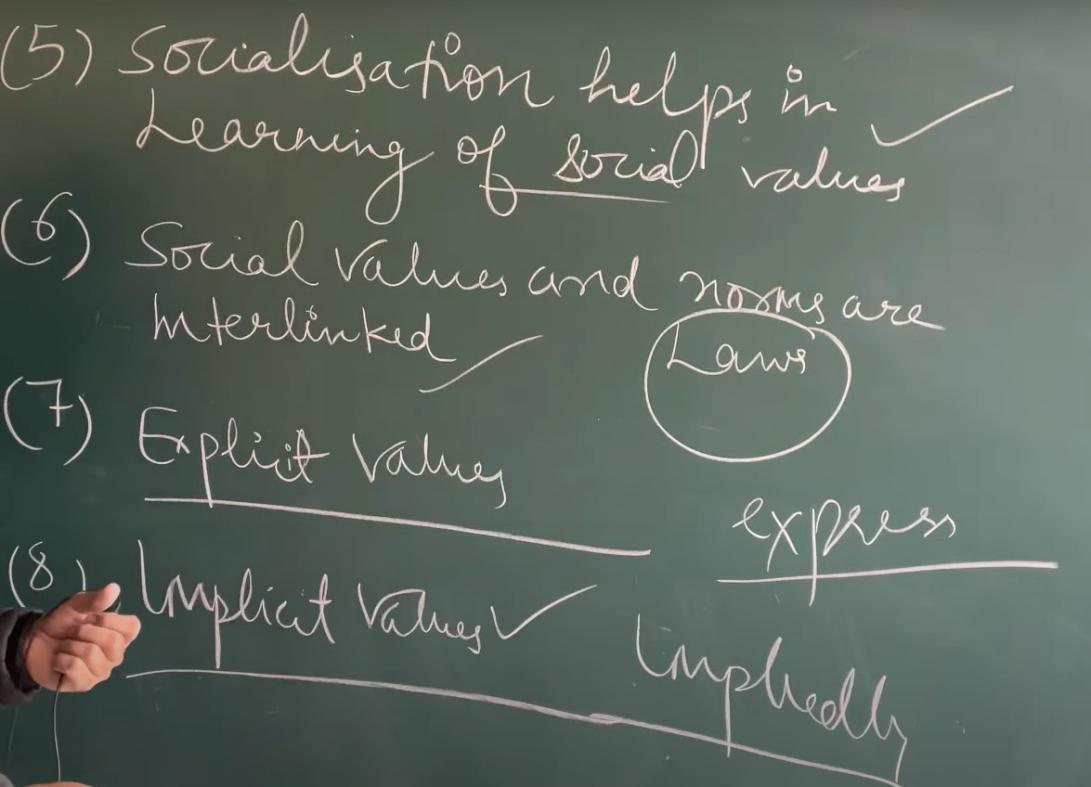 (5) Socialisation helps in
Learning of social values
(6) Social Values and norms are
Interlinked
Laws
(7) Explicit Values
express
(8) Implicit Values
Impliedly